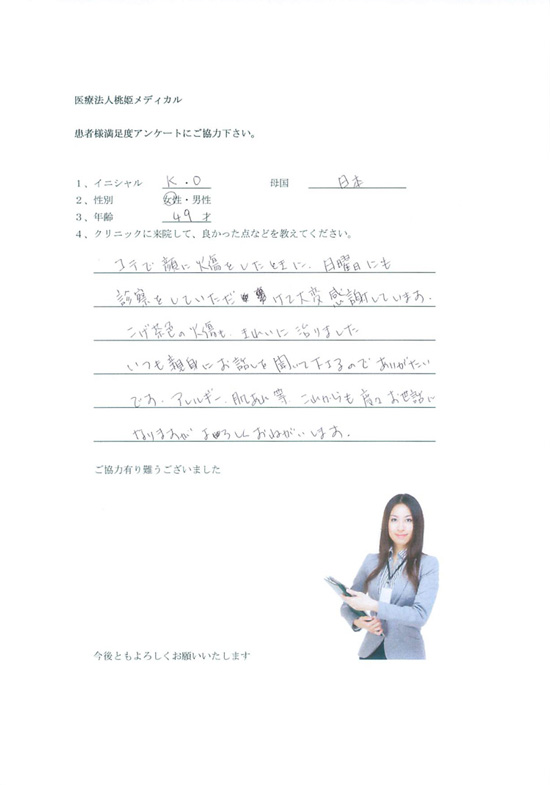 医療法人桃姫メディカル
患者様満足度アンケートにご協力下さい。
1、イニシャル K・O 母国 日本
2、性別 女性・男性
3、年齢 49才
4、クリニックに来院して、良かった点などを教えてください。
コテで顔に火傷をした時に、日曜日にも
診察をしていただけて大変感謝しています。
こげ茶色の火傷も、きれいに治りました
いつも親身にお話しを聞いて下さるのでありがたい
です。アレルギー、肌あれ等 これからも度々お世話に
なりますがよろしくおねがいします。
ご協力有り難うございました
今後ともよろしくお願いいたします